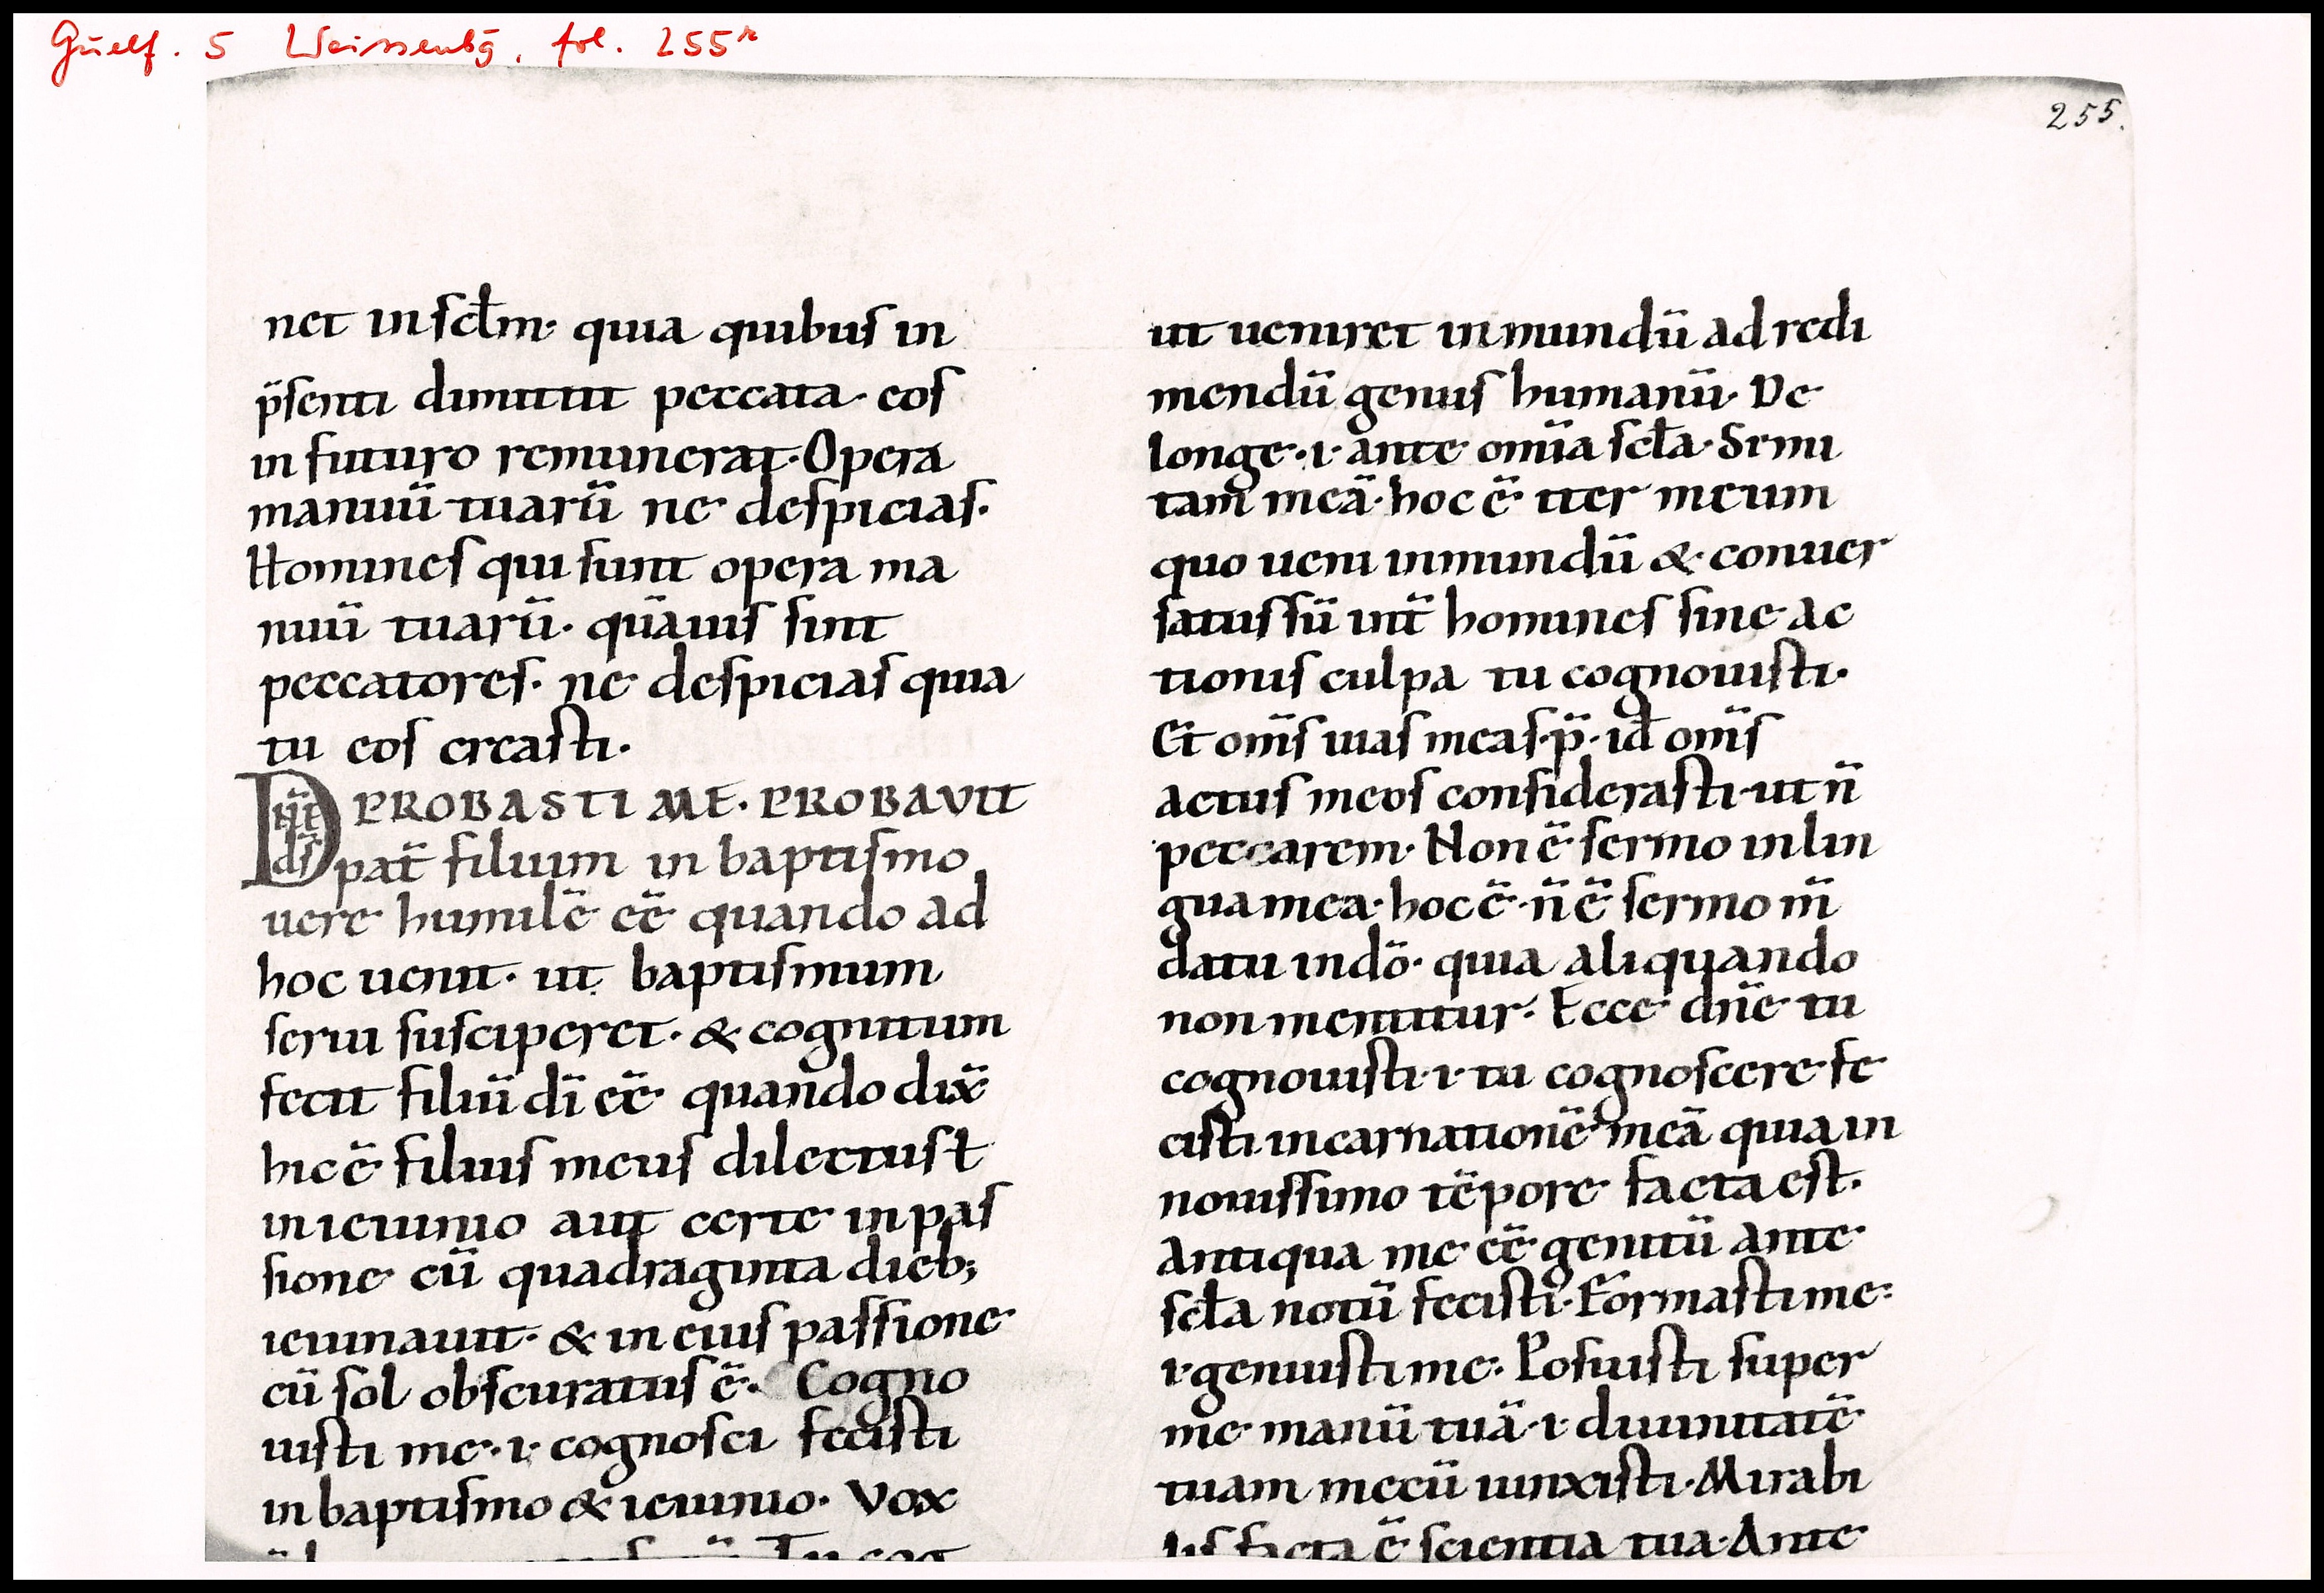 Guelf. 5 Weissenbg, fol. 255r
255.
net in scłm· quia quibus in
p̈senti dimittit peccata· eos
in futuro remunerat· Opera
manuū tuarū ne despicias·
Homines qui sunt opera ma
nuū tuarū· quāuis sint
peccatores· ne despicias quia
tu eos creasti·
D PROBASTI ME· PROBAVIT
pat̄ filium in baptismo
uere humilē eē quando ad
hoc uenit· ut baptismum
serui susciperet· & cognitum
fecit filiū dī eē quando dix̄
hic ē filius meus dilectus ł
in ieiunio aut certe in pas
sione cū quadraginta dieb;
ieiunauit· & in eius passione
cū sol obscuratus ē· Cogno
uisti me· i· cognosci fecisti
in baptismo & ieiunio· Vox
ut ueniret in mundū ad redi
mendū genus humanū· De
longe· i· ante om̄ia scła· Semi
tam meā· hoc ē iter meum
quo ueni in mundū & conuer
satus sū int̄ homines sine ac
tionis culpa tu cognouisti·
Et om̄s uias meas· p̄· id om̄s
actus meos considerasti· ut n̄
peccarem· Non ē sermo in lin
gua mea· hoc ē· n̄ ē sermo m̄
datu in dō· quia aliquando
non mentitur· Ecce dn̄e tu
cognouisti· i· tu cognoscere fe
cisti incarnationē meā quia in
nouissimo tēpore facta est·
Antiqua me eē genitū ante
scła notū fecisti· Formasti me·
i· genuisti me· Posuisti super
me manū tuā· i· diuinitatē
tuam mecū iunxisti· Mirabi
lis facta ē scientia tua· Ante